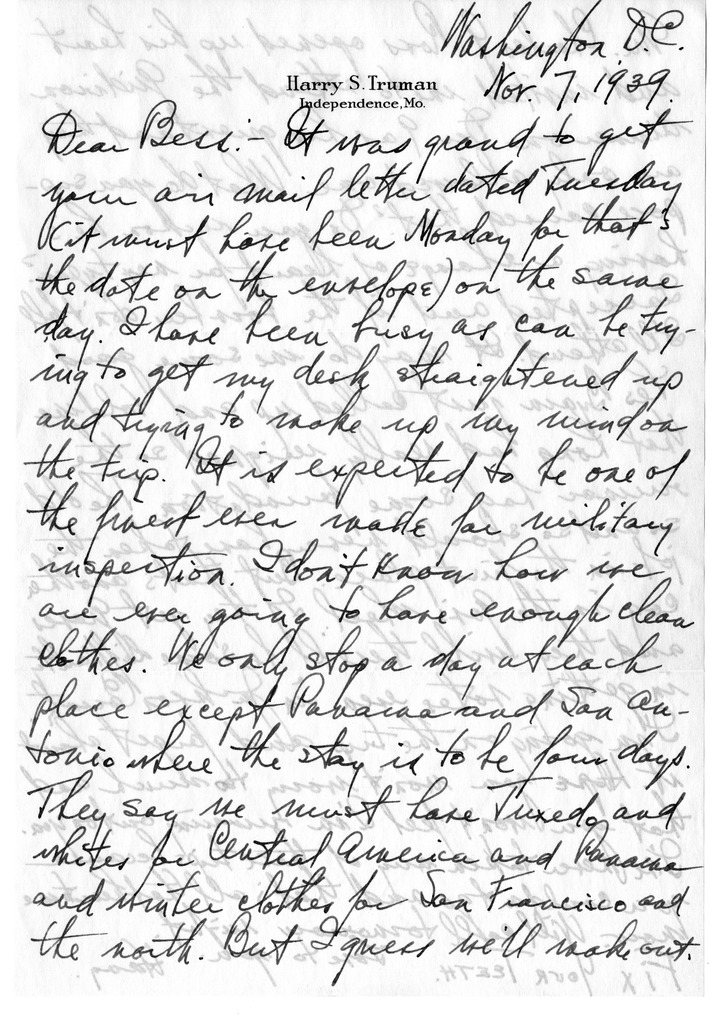 Washington, D.C.
Nov. 7, 1939.
Harry S. Truman
Independence, Mo.
Dear Bess:- It was grand to get
your air mail letter dated Tuesday
(it must have been Monday for that's
the date on the envelope) on the same
day. I have been busy as can be try-
ing to get my desk straightened up
and trying to make up my mind on
the trip. It is expected to be one of
the finest ever made for military
inspection. I don't know how we
are ever going to have enough clean
clothes. We only stop a day at each
place except Panama and San An-
tonio where the stay is to be four days.
They say we must have Tuxedo and
whites for Central America and Panama
and winter clothes for San Francisco and
the north. But I guess we'll make out.